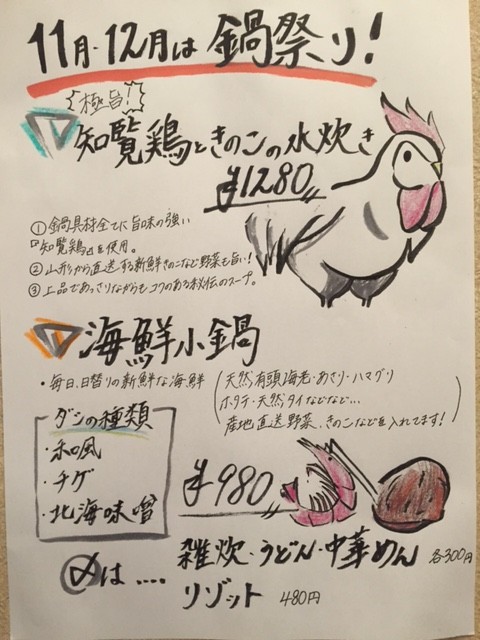 11月・12月は 鍋祭り!
極旨!
知覧鶏ときのこの水炊き
¥1280
① 鍋具材全てに旨味の強い
『知覧鶏』を使用。
② 山形から直送する新鮮きのこなど野菜も旨い!
③ 上品であっさりながらもコクのある秘伝のスープ。
海鮮小鍋
・毎日、日替りの新鮮な海鮮
(天然有頭海老・あさり・ハマグリ
ホタテ・天然タイなどなど…
産地直送野菜、きのこなどを入れてます!)
ダシの種類
・和風
・チゲ
・北海味噌
¥980
〆は ....
雑炊・うどん・中華めん 各300円
リゾット 480円